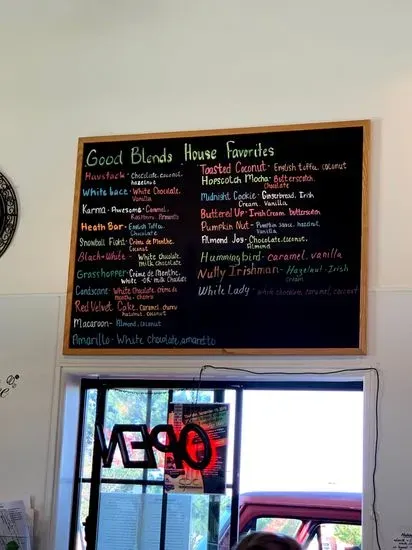 Good Blends House Favorites
Haystack - chocolate, coconut,
hazelnut
White Lace - White Chocolate,
Vanilla
Karma - Awesome - Caramel,
Raspberry, Almond
Heath Bar - English Toffee,
Chocolate
Snowball Fight - Crème de Menthe,
Coconut
Black-White - White chocolate
milk chocolate
Grasshopper - Crème de Menthe,
white -OR- milk chocolate
White Chocolate, Crème de
Menthe, Cherry
Red Velvet Cake - Caramel, cherry
hazelnut, coconut
Macaroon - Almond, coconut
Amarillo - White chocolate, amaretto
Toasted Coconut - English toffee, coconut
Hopscotch Mocha - Butterscotch,
Chocolate
Midnight Cookie - Gingerbread, Irish
Cream, Vanilla
Buttered Up - Irish Cream, butterscotch
Pumpkin Nut - Pumpkin sauce, hazelnut,
vanilla
Almond Joy - Chocolate, coconut,
Almond
Hummingbird - caramel, vanilla
Nutty Irishman - Hazelnut - Irish
cream
White Lady - white chocolate, caramel, coconut
OPEN